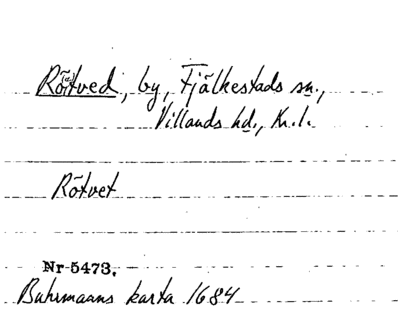 Rötved, by, Fjälkestads sn.,
Villands hd., Kr.l.
Rötvet
Nr 5473.
Buhrmanns karta 1684